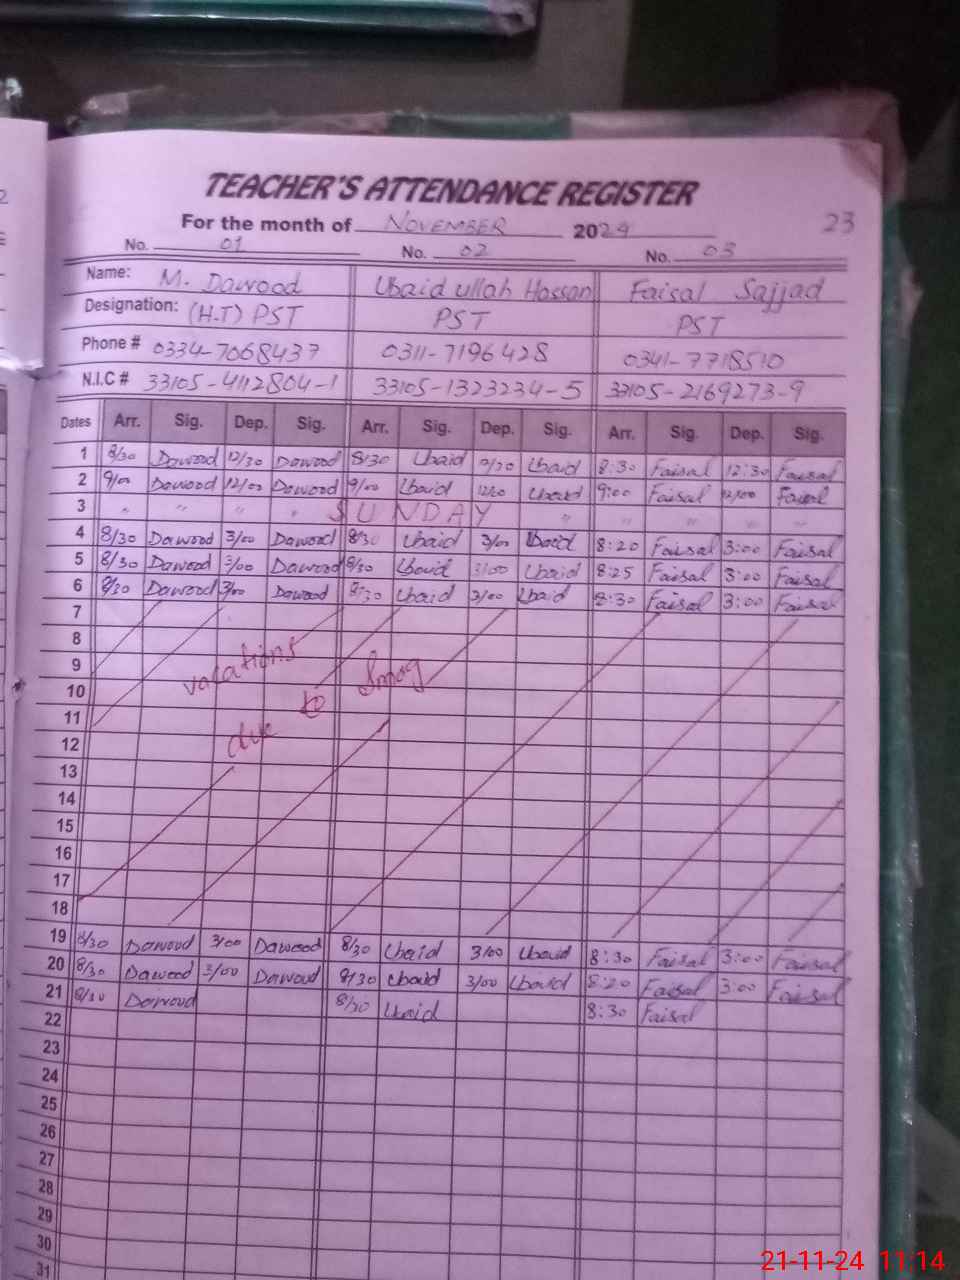 TEACHER'S ATTENDANCE REGISTER
23
For the month of NOVEMBER 2024
No. 01 No. 02 No. 03
Name: M. Dawood Ubaid ullah Hassan Faisal Sajjad
Designation: (H.T) PST PST PST
Phone # 0334-7068437 0311-7196428 0341-7718510
N.I.C # 33105-4112804-1 33105-1323234-5 33105-2169273-9
Dates Arr. Sig. Dep. Sig. Arr. Sig. Dep. Sig. Arr. Sig. Dep. Sig.
1 8/30 Dawood 12/30 Dawood 8/30 Ubaid 12/30 Ubaid 8:30 Faisal 12:30 Faisal
2 9/00 Dawood 12/00 Dawood 9/00 Ubaid 12/00 Ubaid 9:00 Faisal 12/00 Faisal
3 " " " " SUNDAY " " " " "
4 8/30 Dawood 3/00 Dawood 8/30 Ubaid 3/00 Ubaid 8:20 Faisal 3:00 Faisal
5 8/30 Dawood 3/00 Dawood 8/30 Ubaid 3/00 Ubaid 8:25 Faisal 3:00 Faisal
6 8/30 Dawood 3/00 Dawood 8/30 Ubaid 3/00 Ubaid 8:30 Faisal 3:00 Faisal
7
8
9 vacations
10 to Smog
11
12 due
13
14
15
16
17
18
19 8/30 Dawood 3/00 Dawood 8/30 Ubaid 3/00 Ubaid 8:30 Faisal 3:00 Faisal
20 8/30 Dawood 3/00 Dawood 8/30 Ubaid 3/00 Ubaid 8:20 Faisal 3:00 Faisal
21 8/30 Dawood 8/30 Ubaid 8:30 Faisal
22
23
24
25
26
27
28
29
30
31
21-11-24 11:14